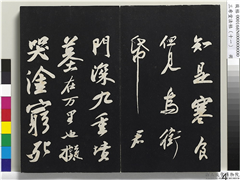 知是寒食
但見烏銜
帋君
門深九重墳
墓在万里也擬
哭塗窮死